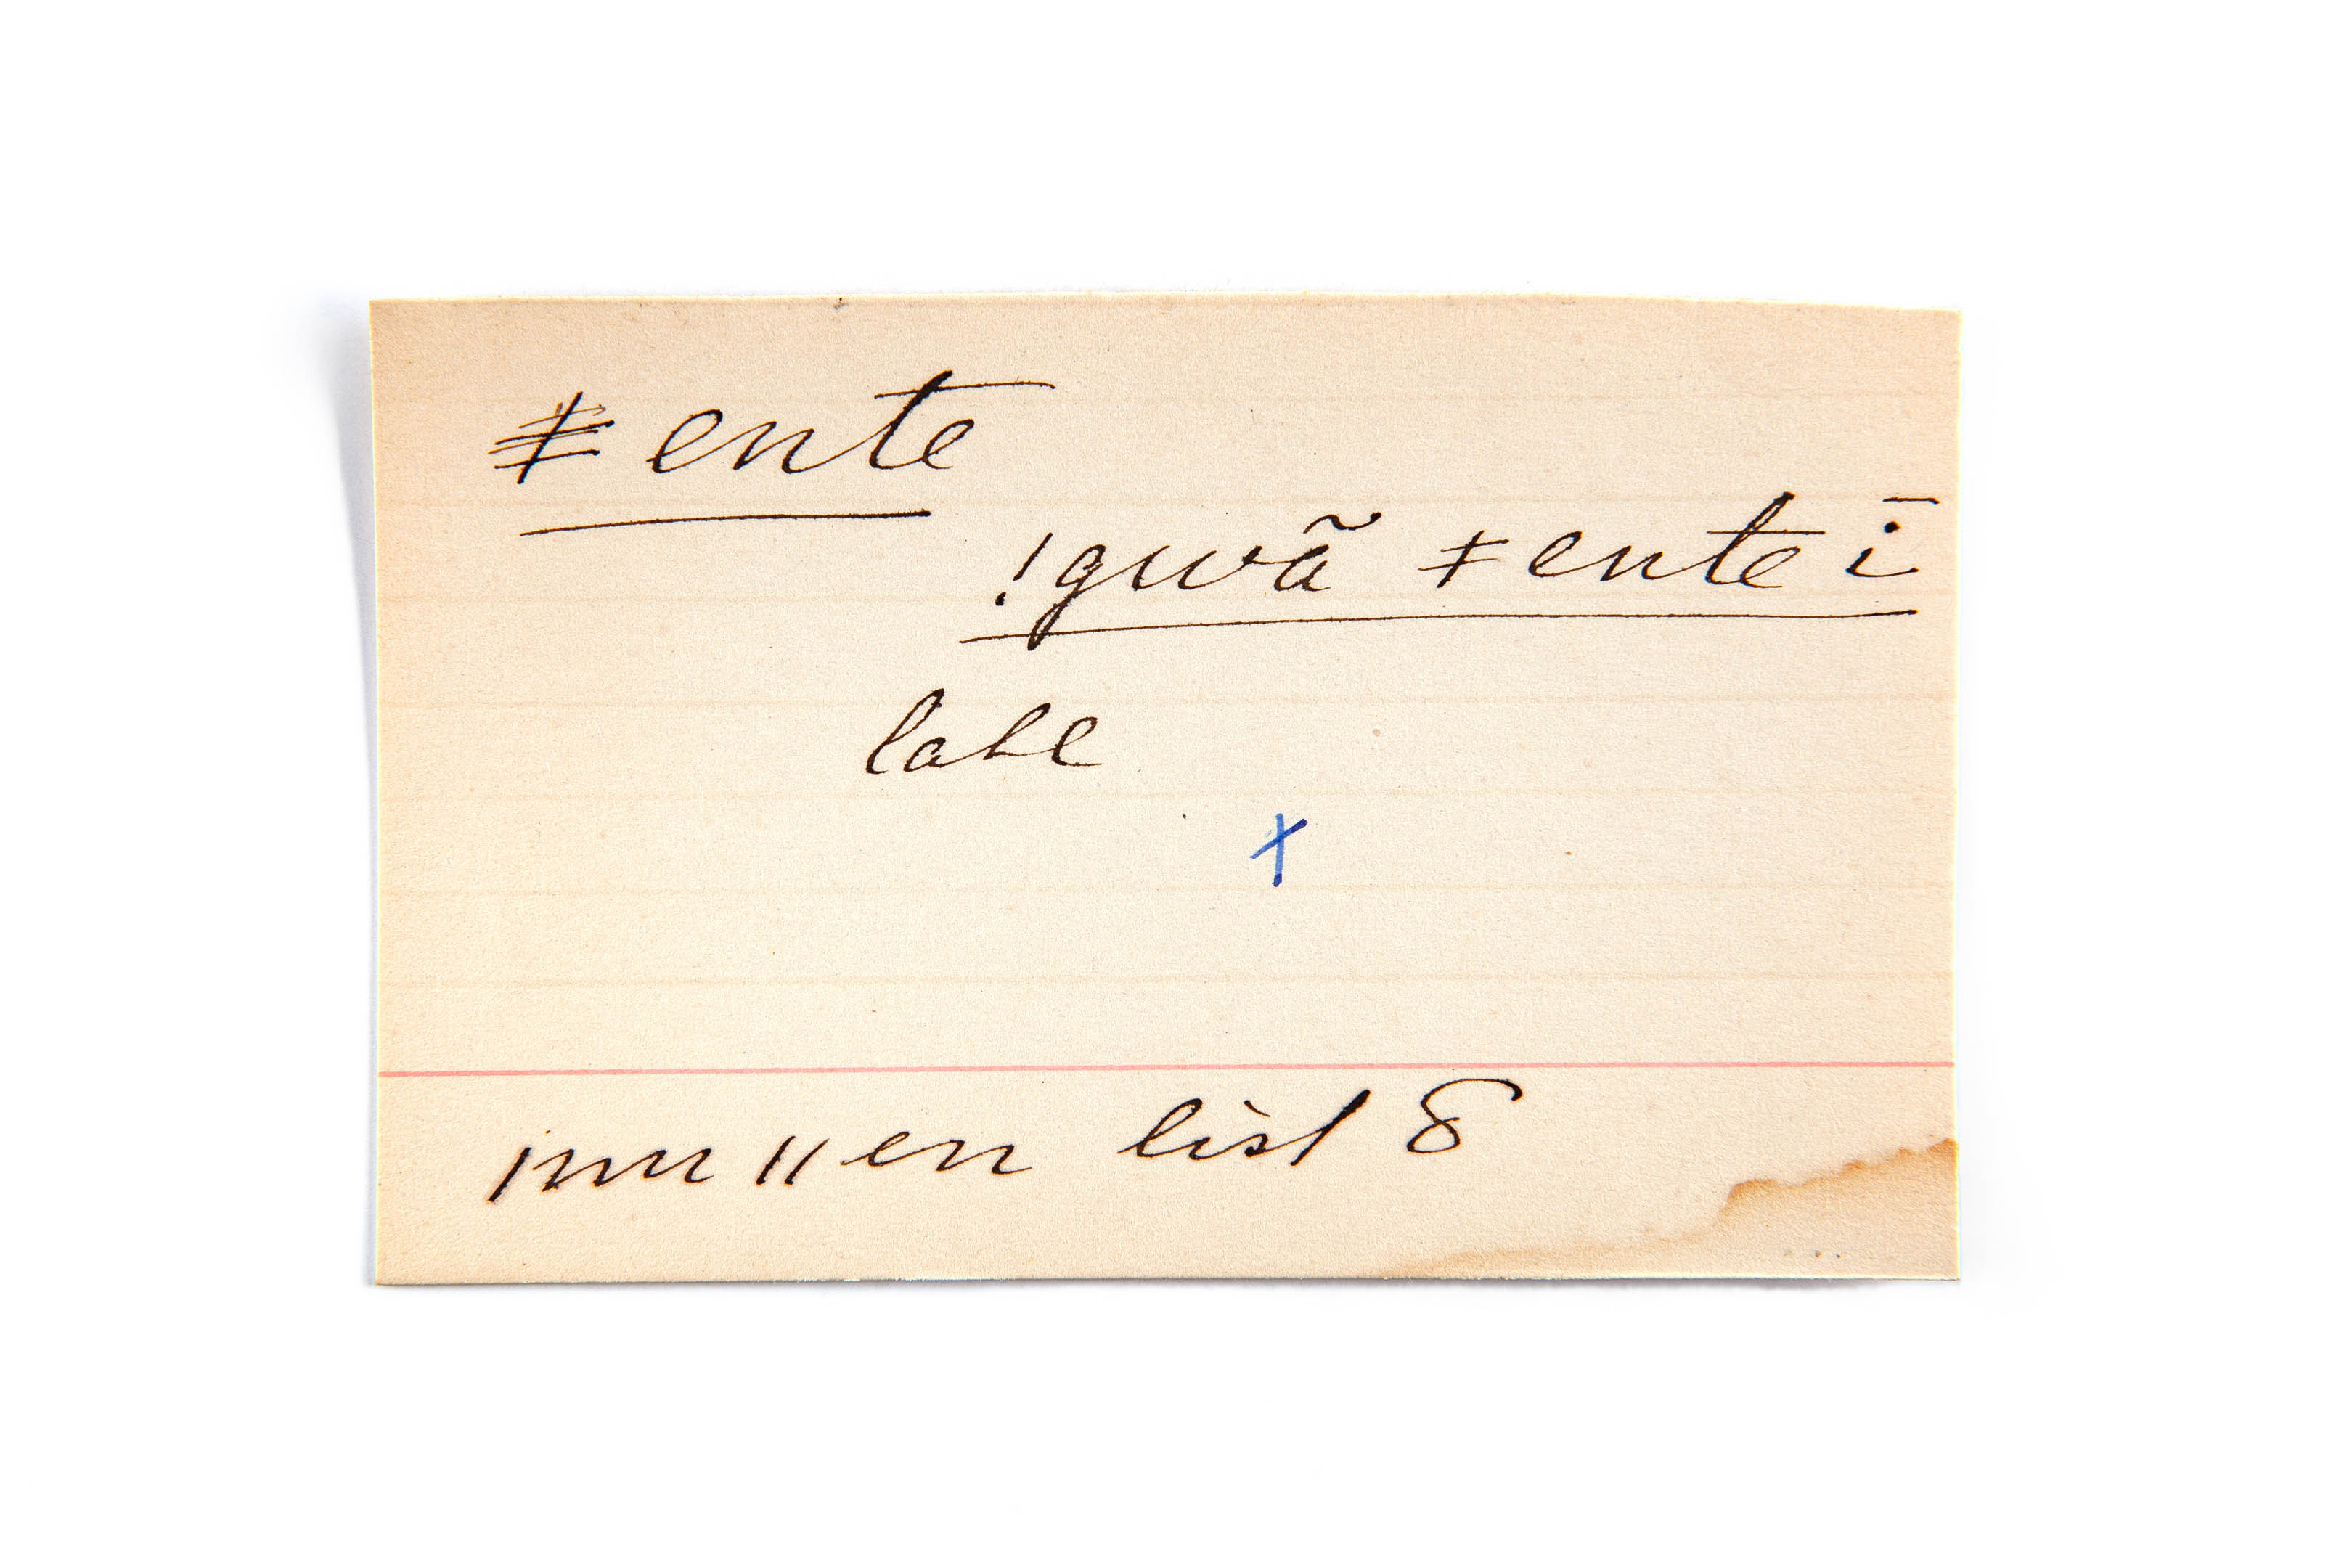 ǂente
!gwã ǂente ī
lahl
x
ǀnu ǁen list 8